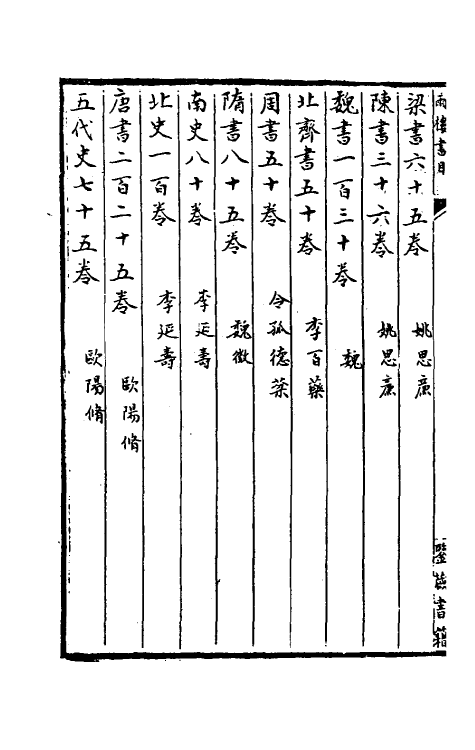 樓書目
書籍
梁書六十五卷 姚思廉
陳書三十六卷 姚思廉
魏書一百三十卷 魏
北齊書五十卷 李百藥
周書五十卷 令孤德棻
隋書八十五卷 魏徵
南史八十卷 李延壽
北史一百卷 李延壽
唐書二百二十五卷 歐陽脩
五代史七十五卷 歐陽脩